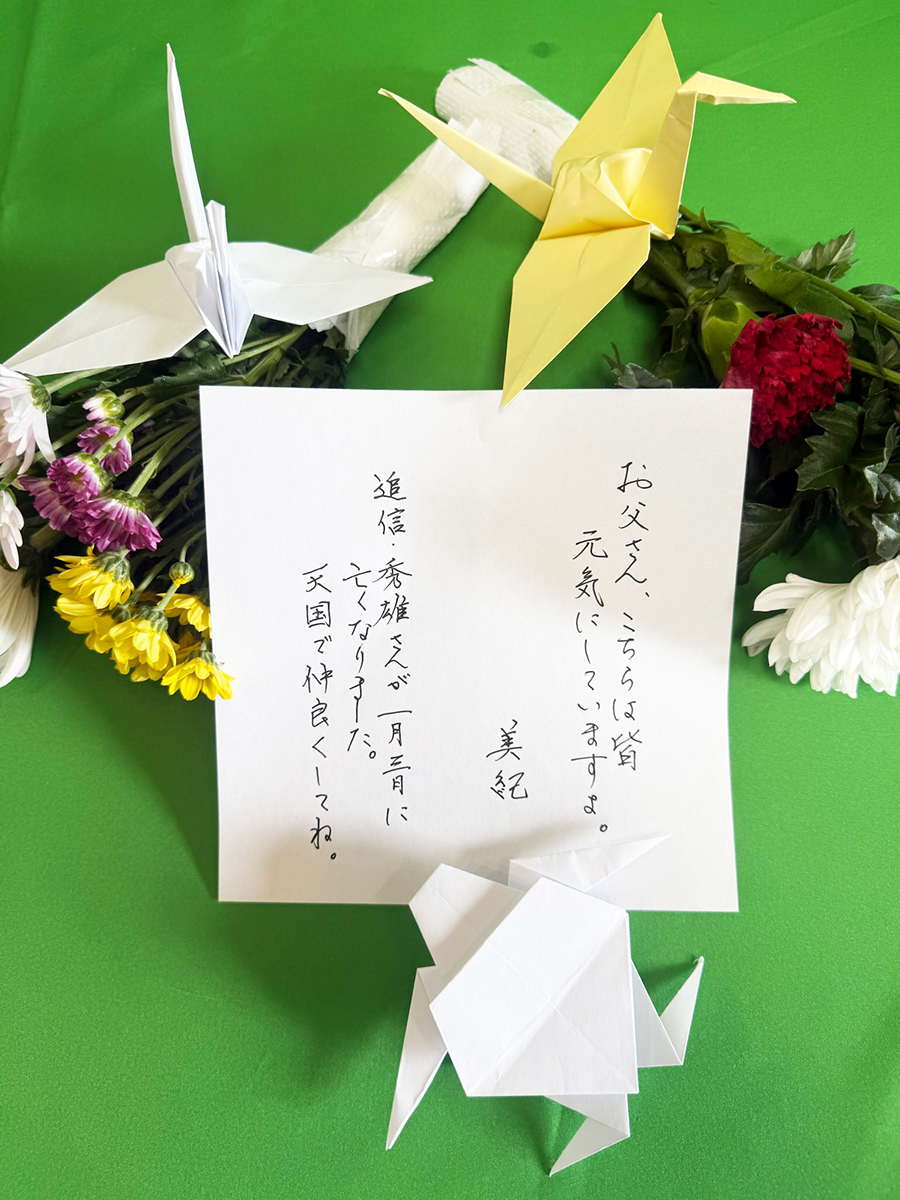 お父さん、こちらは皆
元気にしていますよ。
美紀
追信・秀雄さんが一月三日に
亡くなりました。
天国で仲良くしてね。